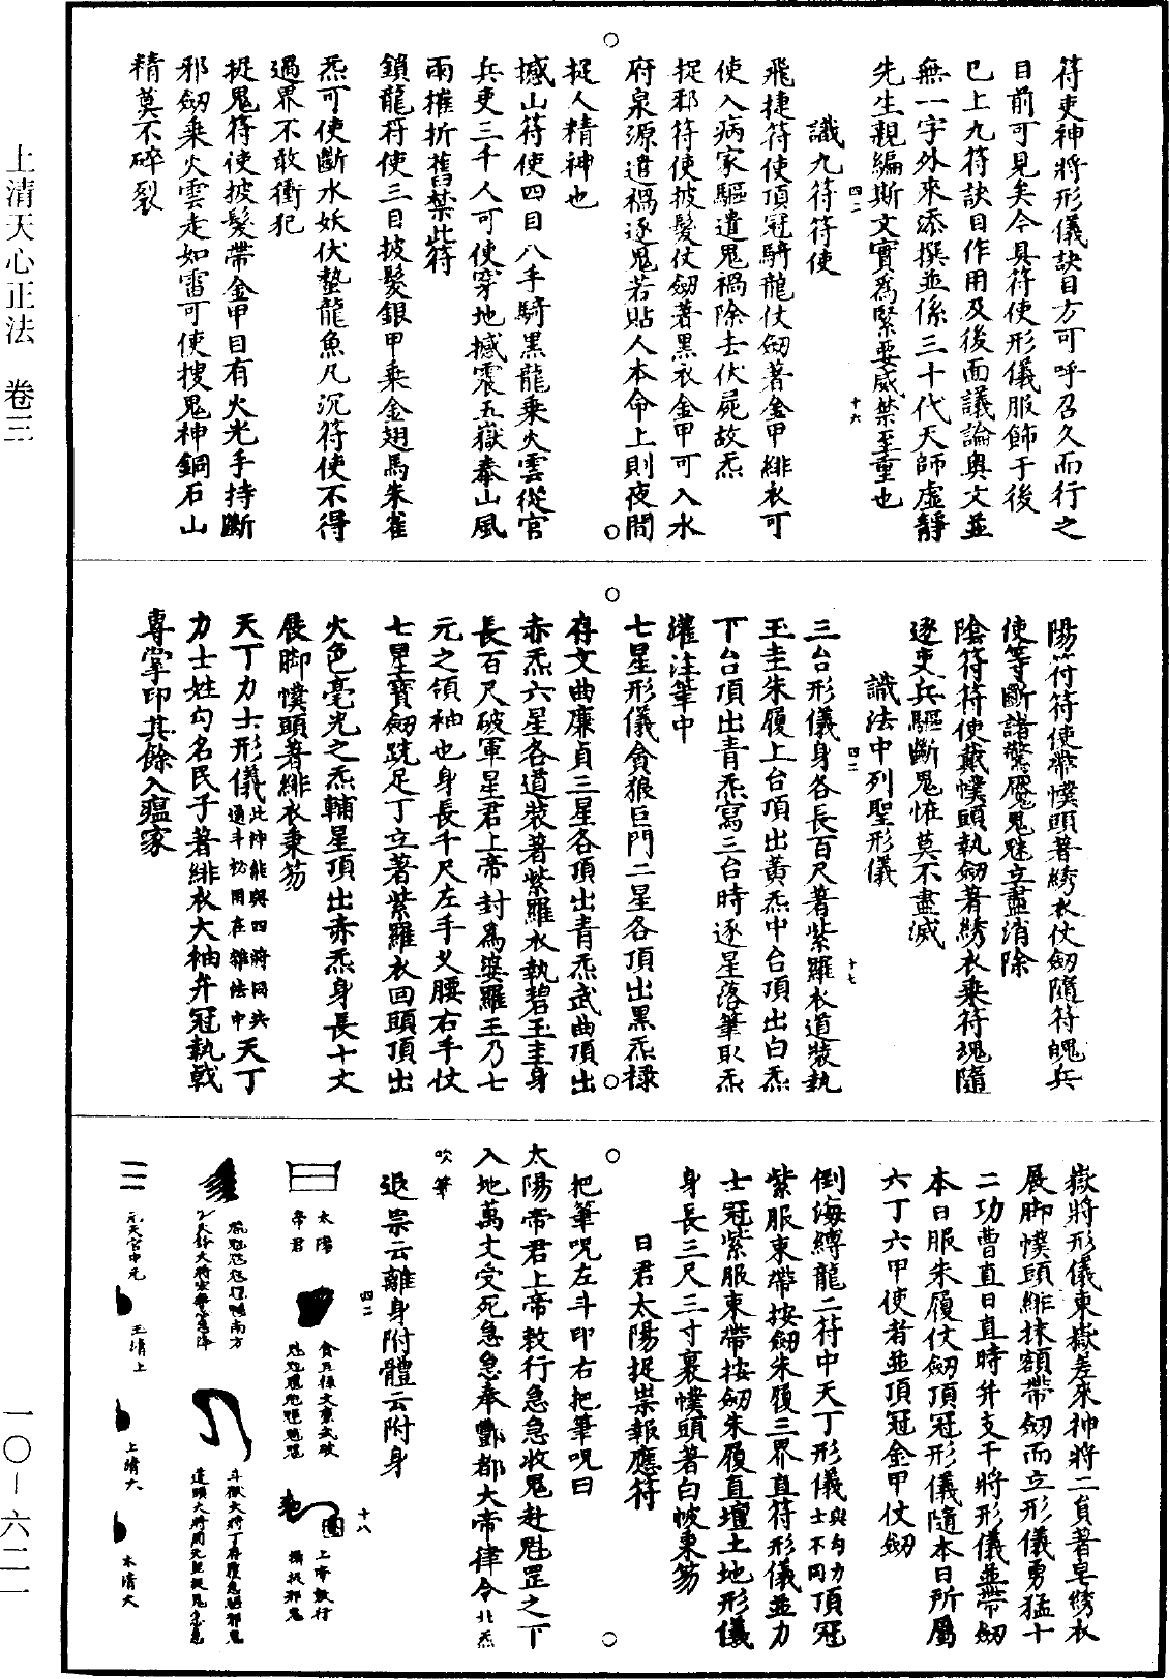 上清天心正法　卷三
一〇－六二一
符吏神將形儀訣目方可呼召久而行之
目前可見矣今具符使形儀服飾于後
已上九符訣目作用及後面議論奧文並
無一字外來添撰並係三十代天師虛靜
先生親編斯文實為緊要威禁至重也
四二　十六
識九符符使
飛捷符使頂冠騎龍仗劒著金甲緋衣可
使入病家驅遣鬼禍除去伏屍故炁
捉邪符使披髮仗劒著黑衣金甲可入水
府泉源遣禍逐鬼若貼人本命上則夜間
捉人精神也
撼山符使四目八手騎黑龍乘火雲從官
兵吏三千人可使穿地撼震五嶽奉山風
雨摧折舊禁此符
鎖龍符使三目披髮銀甲乘金翅馬朱雀
炁可使斷水妖伏蟄龍魚凡沉符使不得
過界不敢衝犯
捉鬼符使披髮帶金甲目有火光手持斷
邪劒乘火雲走如雷可使搜鬼神銅石山
精莫不碎裂
陽符符使帶幞頭著綉衣仗劒隨符魄兵
使等斷諸驚魘鬼魅立盡消除
陰符符使戴幞頭執劒著綉衣乘符魂隨
逐吏兵驅斷鬼恠莫不盡滅
識法中列聖形儀
四二　十七
三台形儀身各長百尺著紫羅衣道裝執
玉圭朱履上台頂出黃炁中台頂出白炁
下台頂出青炁寫三台時逐星落筆取炁
灌注筆中
七星形儀貪狼巨門二星各頂出黑炁祿
存文曲廉貞三星各頂出青炁武曲頂出
赤炁六星各道裝著紫羅衣執碧玉圭身
長百尺破軍星君上帝封為婆羅王乃七
元之領袖也身長千尺左手叉腰右手仗
七星寶劒跣足丁立著紫羅衣回頭頂出
火色毫光之炁輔星頂出赤炁身長十丈
展脚幞頭著緋衣秉笏
天丁力士形儀此神能與四將同共通斗妙用在雜法中天丁
力士姓勾名民子著緋衣大袖弁冠執戟
專掌印其餘入瘟家
嶽將形儀東嶽差來神將二員著皂綉衣
展脚幞頭緋抹額帶劒而立形儀勇猛十
二功曹直日直時并支干將形儀並帶劒
本日服朱履仗劒頂冠形儀隨本日所屬
六丁六甲使者並頂冠金甲仗劒
倒海縛龍二符中天丁形儀與勾力士不同頂冠
紫服束帶按劒朱履三界直符形儀並力
士冠紫服束帶按劒朱履直壇土地形儀
身長三尺三寸裹幞頭著白帔秉笏
日君太陽捉祟報應符
把筆呪左斗印右把筆呪曰
太陽帝君上帝敕行急急收鬼赴魁罡之下
入地萬丈受死急急奉酆都大帝律令北炁
吹筆
退祟云離身附體云附身
四二　十八
太陽
帝君
貪巨祿文廉武破
上帝敕行
攝捉邪鬼
元天宮中元
玉清上
上清大